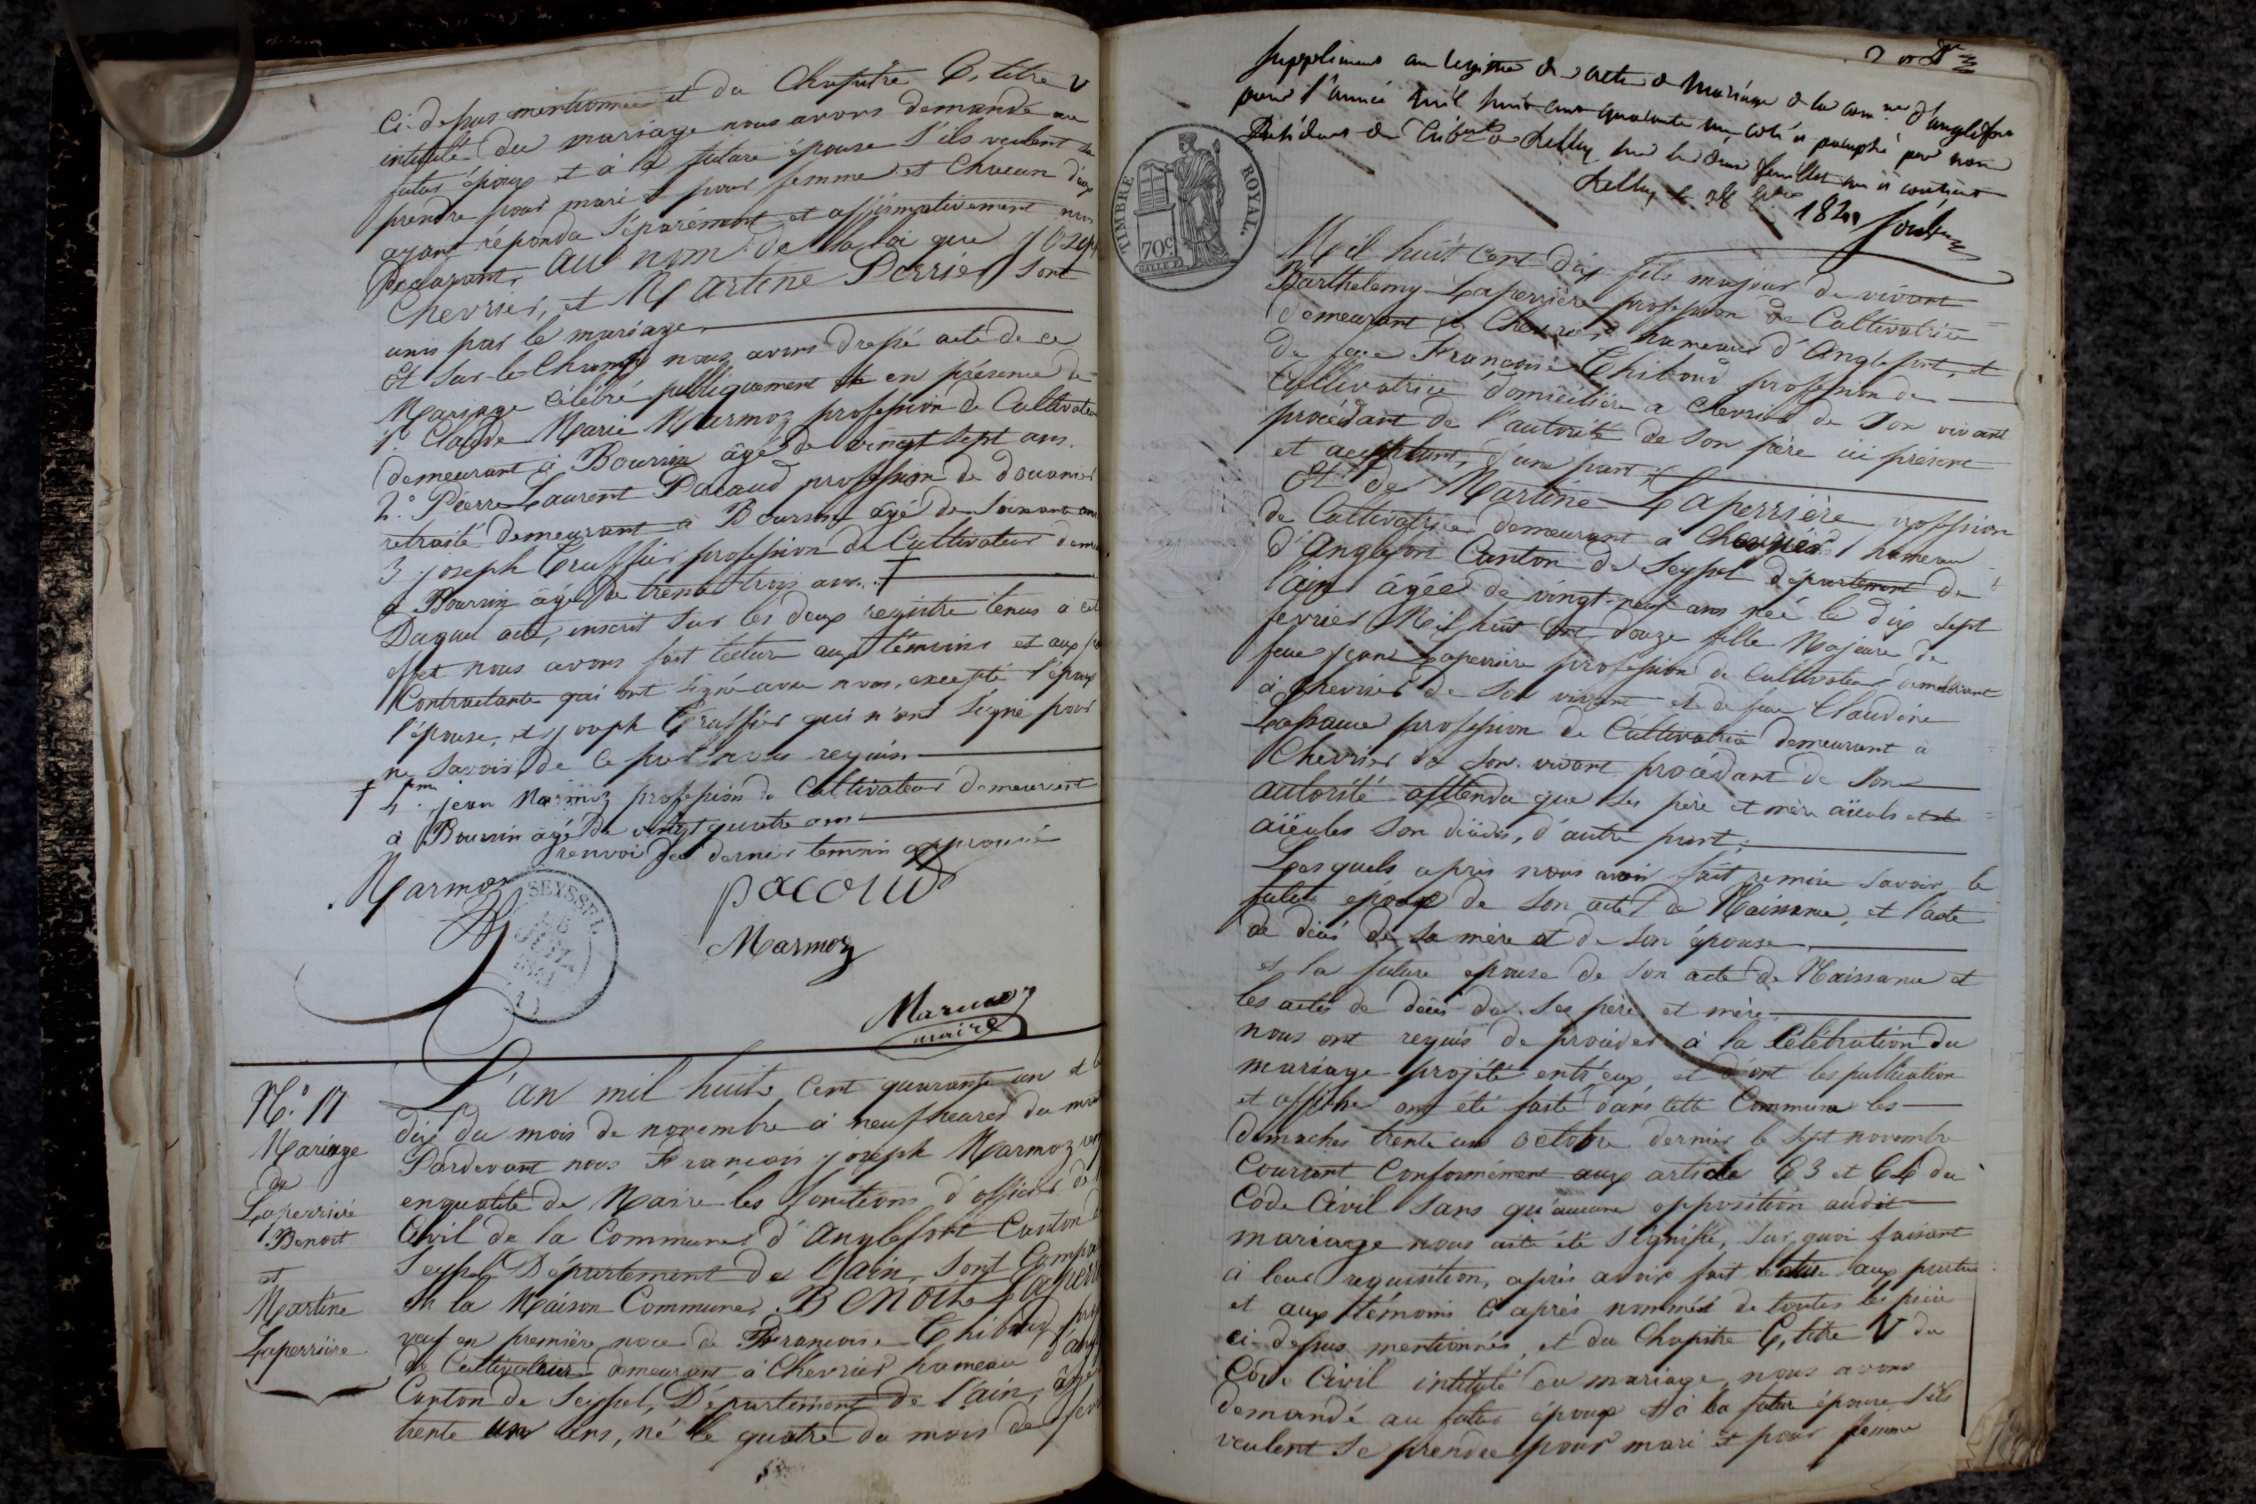 Ci-dessus mentionnées et du Chapitre 6, titre V
intitulé du mariage nous avons demandé au
futur époux et à la future épouse s'ils veulent se
prendre pour mari et pour femme et chacun d'eux
ayant répondu séparément et affirmativement nous
Declarons, au nom de la loi que Joseph
Chevrier, et Martine Perrier sont
unis par le mariage.
Et sur-le-Champ nous avons dressé acte de ce
Mariage célébré publiquement et en présence de
1º Claude Marie Marmoz profession de Cultivateur
demeurant à Boursin âgé de vingt sept ans.
2º. Pierre Laurent Pacaud profession de douanier
retraité demeurant à Boursin âgé de soixante ans
3 joseph Truffier profession de Cultivateur
à Boursin âgé de trente trois ans. †
Duquel acte, inscrit sur les deux registre tenus à cet
effet nous avons fait lecture aux témoins et aux
Contractants qui ont signé avec nous, excepté l'époux
l'épouse, et joseph Truffier qui n'ont signé pour
ne savoir de ce fait nous requis.
† 4me. jean Marmoz profession de Cultivateur demeurant
à Boursin âgé de vingt quatre ans
renvoi du dernier temoin approuvé
Marmoz
pacoud
SEYSSEL
Marmoz
Marmoz
maire
Nº. 17
Mariage
de
Laperrière
Benoit
et
Martine
Laperrière
L'an mil huit Cent quarante un et le
dix du mois de novembre à neuf heures du
Pardevant nous François joseph Marmoz
en qualité de Maire les fonctions d'officier de
Civil de la Commune d'Anglefort Canton de
Seyssel Département de l'ain, Sont
en la Maison Commune, Benoit
veuf en première noce de Françoise Thiboud
de Cultivateur demeurant à Chevrier hameau
Canton de Seyssel, Département de l'ain, âgé
trente un ans, né le quatre du mois de
Supplément au registre des actes de Mariage de la comne d'anglefort
pour l'année mil huit cent quarante un coté et paraphé par nous
Président du tribal de Belley sur les deux feuillets qu'il contient
Belley le 28
TIMBRE ROYAL.
70c.
Mil huit Cent dix fils majeur de vivant
Barthelemy Laperrière profession de Cultivatrice
demeurant à Chevrier hameau d'Anglefort, et
de feue Françoise Thiboud profession de
Cultivatrice domiciliée a Chevrier de Son vivant
procédant de l'autorité de Son père ici présent
et acceptant, d'une part;
Et de Martine Laperrière profession
de Cultivatrice demeurant à Chevrier hameau
d'Anglefort Canton de Seyssel département de
l'ain âgée de vingt-neuf ans née le dix sept
fevrier Mil huit Cent douze fille Majeure de
feue jean Laperrière profession de Cultivateur demeurant
à Chevrier de Son vivant et de feue Claudine
profession de Cultivatrice demeurant à
Chevrier de Son vivant procédant de Son
autorité attendu que ses père et mère aïeuls et
aïeules Son dicidés, d'autre part;
Lesquels après nous avoir fait remise savoir, le
futur époux de Son acte de Naissance, et l'acte
de décé de Sa mère et de Son épouse
et la future epouse de Son acte de Naissance et
les actes de décés de ses père et mère.
nous ont requis de procéder à la célébration du
mariage projeté entr'eux et dont les publication
et affiche ont été faite dans cette Commune les
dimanches trente un octobre dernier le sept novembre
Courrant Conformément aux article 63 et 64 du
Code Civil sans qu'aucune opposition audit
mariage nous aité été signifié, sur quoi faisant
à leur requisition, après avoir fait lecture aux parties
et aux témoins ci après nommés de toutes les pièce
ci-dessus mentionnés, et du Chapitre 6, titre V du
Code Civil intitulé du mariage, nous avons
demandé au futur époux et à la future épouse s'ils
veulent se prendre pour mari et pour femme